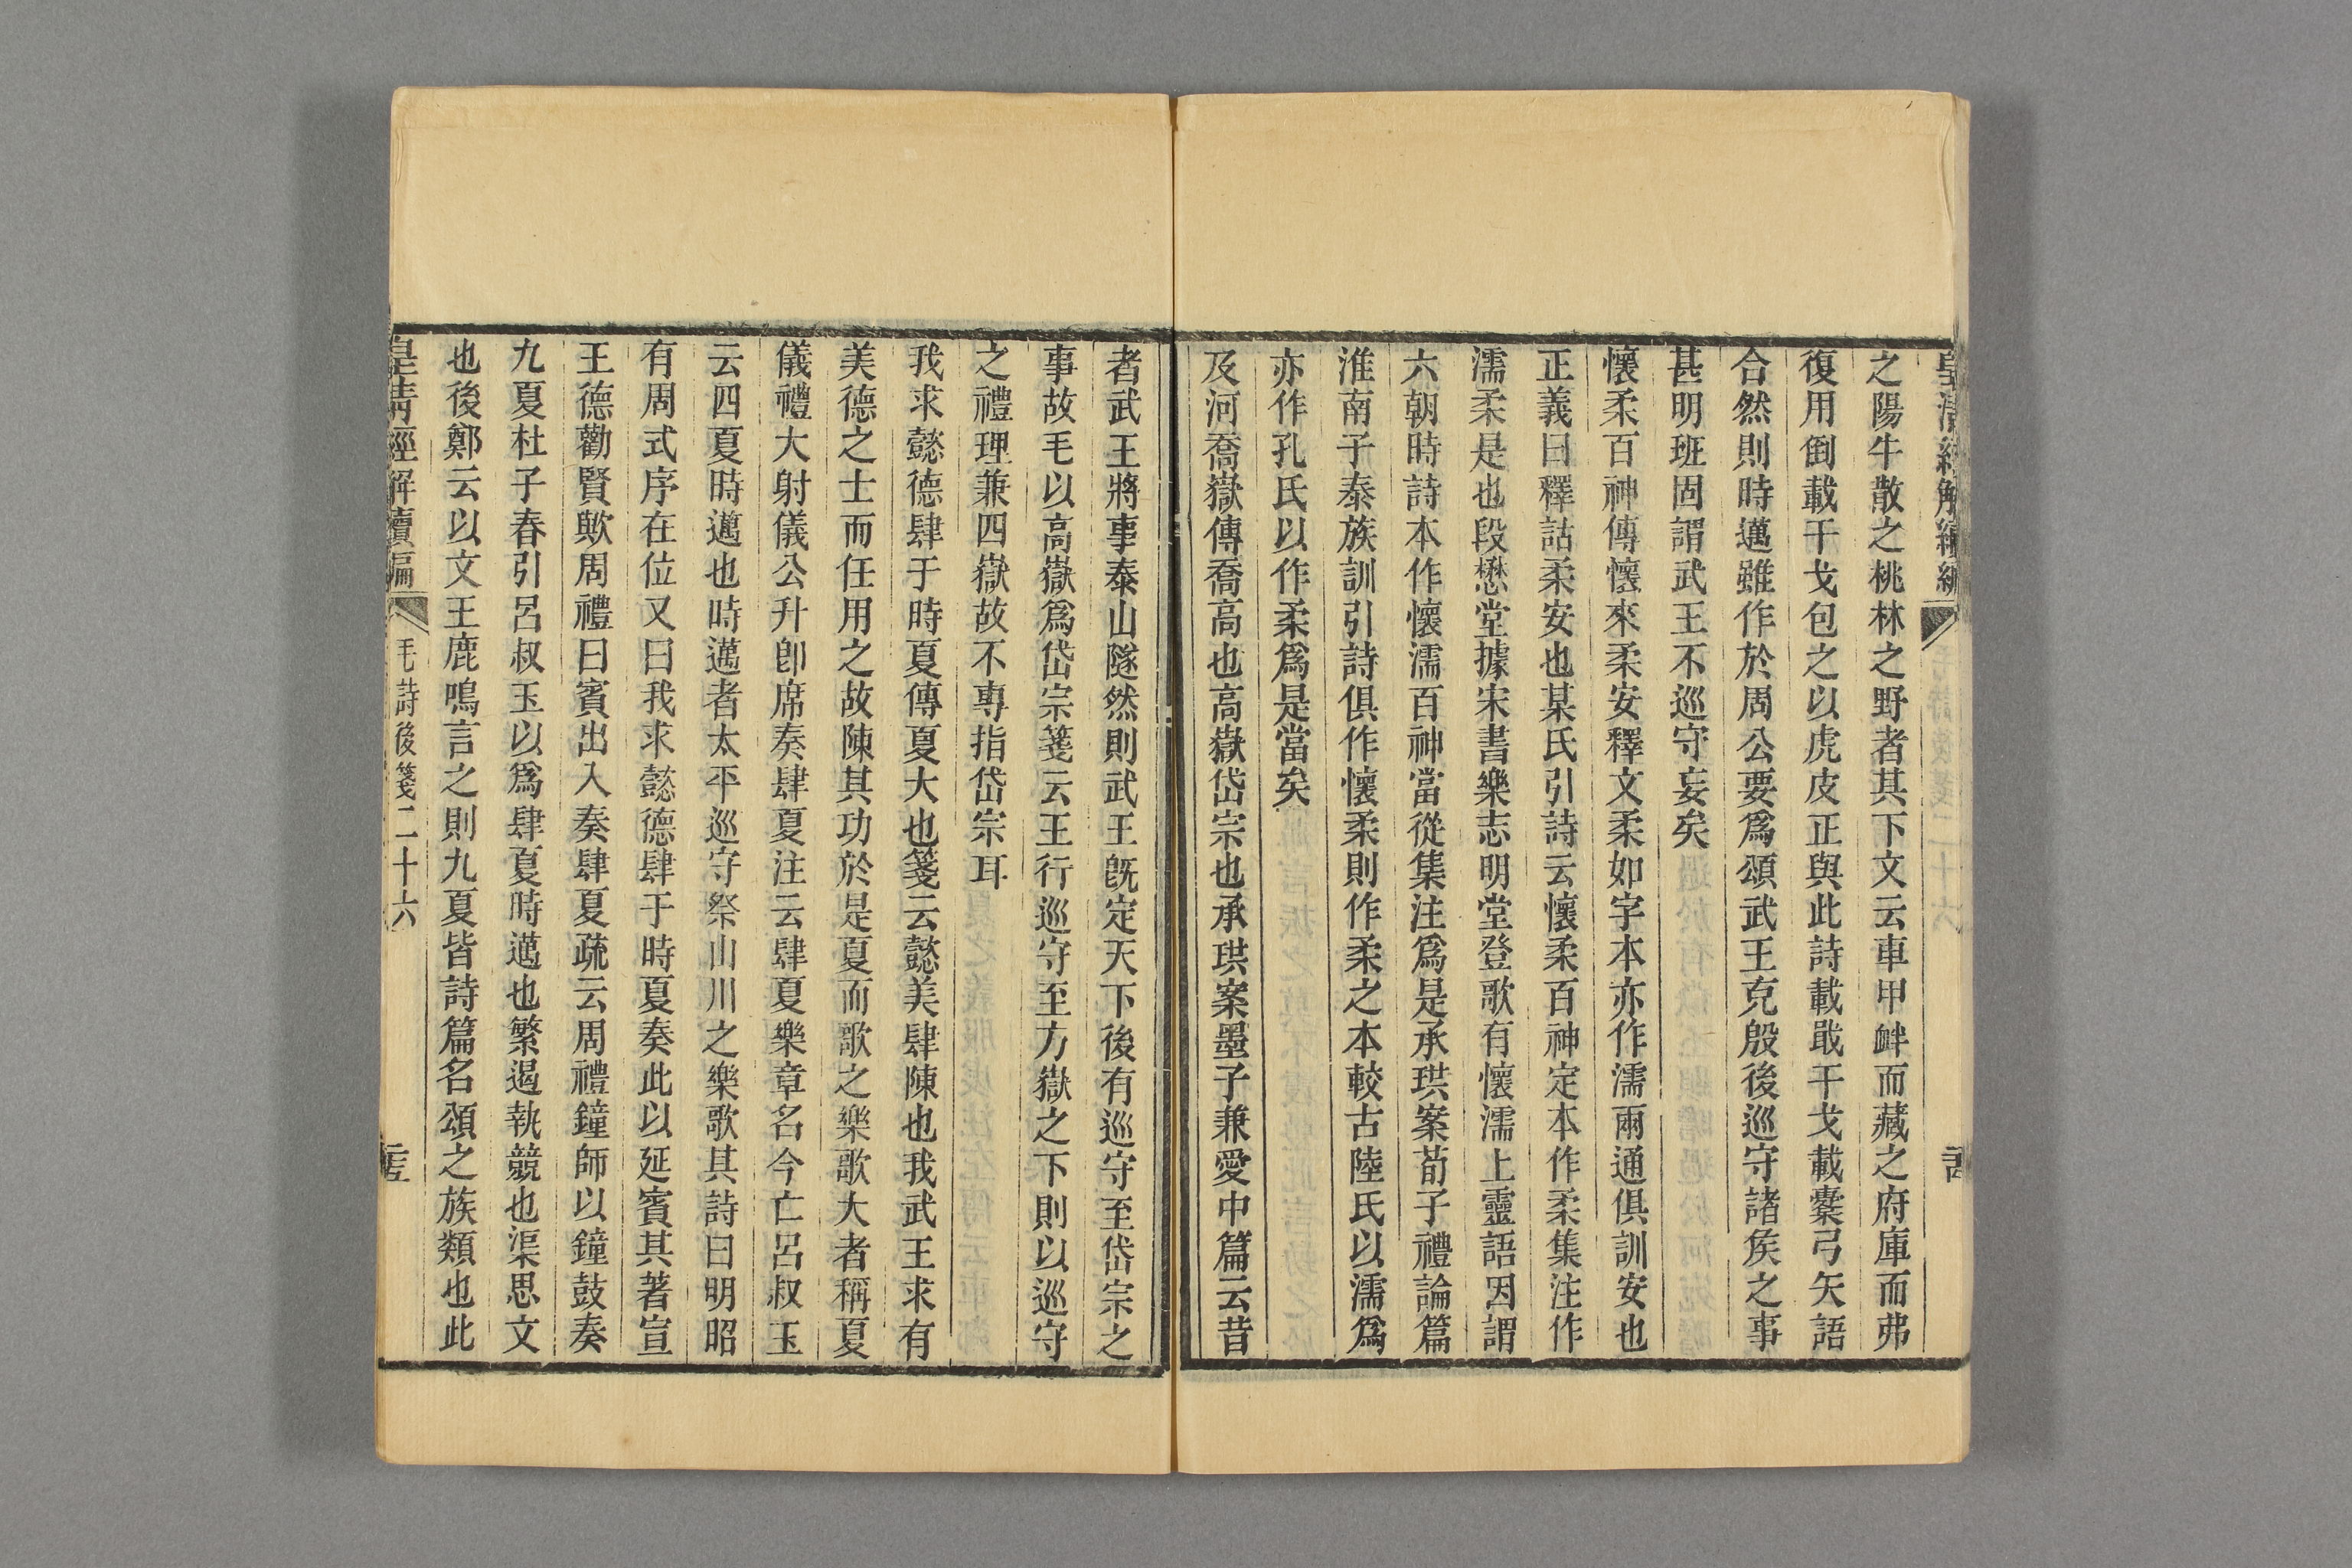 皇清經解續編
之陽牛散之桃林之野者其下文云車甲衅而藏之府庫而弗
復用倒載干戈包之以虎皮正與此詩載戢干戈載櫜弓矢語
合然則時邁雖作於周公要爲頌武王克殷後巡守諸矦之事
甚明班固謂武王不巡守妄矣
懷柔百神傳懷來柔安釋文柔如字本亦作濡兩通俱訓安也
正義曰釋詁柔安也某氏引詩云懷柔百神定本作柔集注作
濡柔是也段懋堂據宋書樂志明堂登歌有懷濡上靈語因謂
六朝時詩本作懷濡百神當從集注爲是承珙案荀子禮論篇
淮南子泰族訓引詩俱作懷柔則作柔之本較古陸氏以濡爲
亦作孔氏以作柔爲是當矣
及河喬嶽傳喬高也高嶽岱宗也承珙案墨子兼愛中篇云昔
者武王將事泰山隧然則武王旣定天下後有巡守至岱宗之
事故毛以高嶽爲岱宗箋云王行巡守至方嶽之下則以巡守
之禮理兼四嶽故不專指岱宗耳
我求懿德肆于時夏傳夏大也箋云懿美肆陳也我武王求有
美德之士而任用之故陳其功於是夏而歌之樂歌大者稱夏
儀禮大射儀公升卽席奏肆夏注云肆夏樂章名今亡呂叔玉
云四夏時邁也時邁者太平巡守祭山川之樂歌其詩曰明昭
有周式序在位又曰我求懿德肆于時夏奏此以延賓其著宣
王德勸賢歟周禮曰賓出入奏肆夏疏云周禮鐘師以鐘鼓奏
九夏杜子春引呂叔玉以爲肆夏時邁也繁遏執競也渠思文
也後鄭云以文王鹿鳴言之則九夏皆詩篇名頌之族類也此
皇清經解續編
毛詩後箋二十六